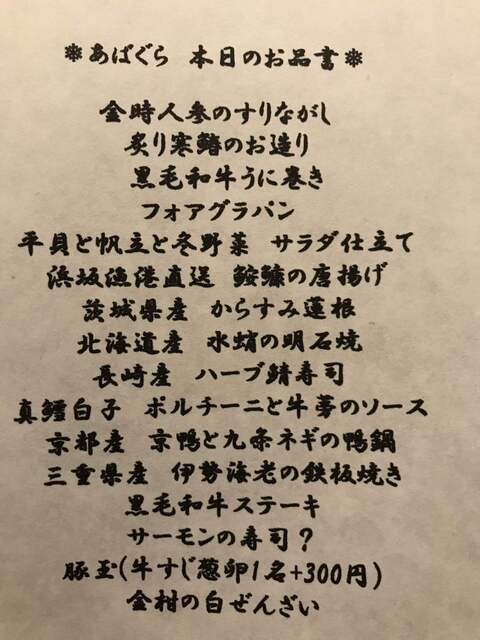 ❄あばぐら 本日のお品書❄
金時人参のすりながし
炙り寒鰆のお造り
黒毛和牛うに巻き
フォアグラパン
平貝と帆立と冬野菜 サラダ仕立て
浜坂漁港直送 鮟鱇の唐揚げ
茨城県産 からすみ蓮根
北海道産 水蛸の明石焼
長崎産 ハーブ鯖寿司
真鱈白子 ポルチーニと牛蒡のソース
京都産 京鴨と九条ネギの鴨鍋
三重県産 伊勢海老の鉄板焼き
黒毛和牛ステーキ
サーモンの寿司?
豚玉(牛すじ葱卵1名+300円)
金村の白ぜんざい